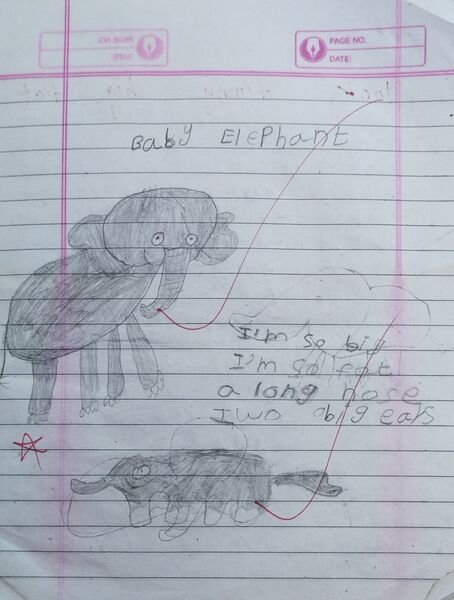 PAGE NO.
DATE:
PAGE NO.
DATE:
Baby Elephant
I'm so big
I'm so fat
a long nose
Two big ears